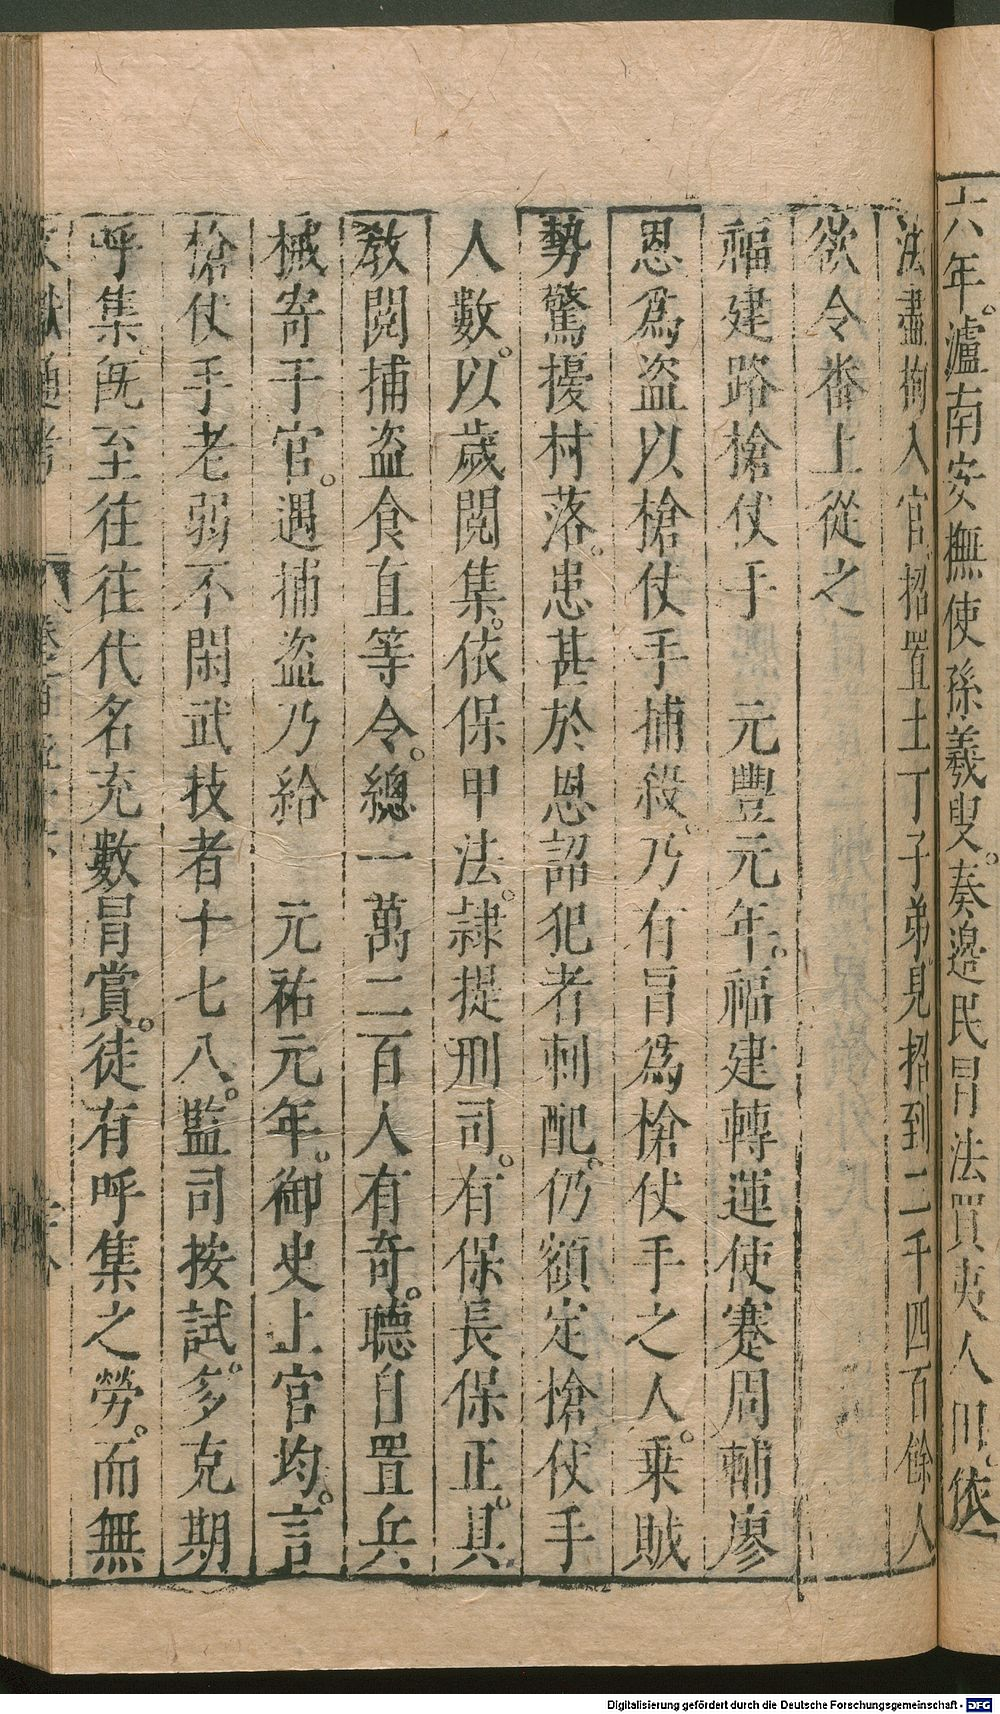 六年。瀘南安撫使孫羲叟。奏邊民冒法買夷人田。依
法盡拘入官。招置土丁子弟。見招到二千四百餘人
欲令番上從之
福建路槍仗手　元豐元年。福建轉運使蹇周輔廖
恩為盜以槍仗手捕殺。乃有冒為槍仗手之人。乗賊
勢驚擾村落。患甚於恩詔犯者刺配。仍額定搶仗手
人數。以歲閱集。依保甲法。隷提刑司。有保長保正。其
敎閱捕盜食直等令。總一萬二百人有奇。聽自置兵
械寄于官。遇捕盜乃給　元祐元年。御史上官均。言
槍仗手老弱不閑武技者十七八。監司按試。多克期
呼集。旣至往往代名充數冒賞。徒有呼集之勞。而無
Digitalisierung gefördert durch die Deutsche Forschungsgemeinschaft - DFG